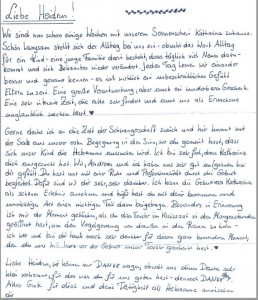 Liebe Heidrun!
Wir sind nun schon einige Wochen mit unserem Sonnenschein Katharina zuhause.
Schön langsam stellt sich der Alltag bei uns ein - obwohl das Wort Alltag
für ein Kind - eine junge Familie darin besteht, dass täglich viel Neues dazu-
kommt und viel Bekanntes wieder verändert. Jeden Tag lernen wir einander
besser und genauer kennen - es ist wirklich ein unbeschreibliches Gefühl
Eltern zu sein. Eine große Verantwortung, aber auch ein wunderbares Geschenk.
Eine sehr intensive Zeit, die alles sehr fordert und auch uns als Erwachsene
unglaublich wachsen lässt ♥
Gerne denke ich an die Zeit der Schwangerschaft zurück und hier kommst mit
der Salz aus unserer ersten Begegnung in den Sinn, wo du gemeint hast, dass
sich unser Kind die Hebamme aussuchen wird. Ich bin sehr froh, dass Katharina
dich ausgesucht hat. Wir, Andreas und ich haben uns sehr gut aufgehoben bei
dir gefühlt. Du hast uns mit viel Ruhe und Professionalität durch die Geburt
begleitet. Dafür sind wir dir sehr, sehr dankbar. Ich kann die Geburt von Katharina
als schönes Erlebnis ansehen und du hast mit deiner besonnenen und
einen wichtigen Teil dazu beigetragen. Besonders in Erinnerung
ist mir der Moment geblieben, als du das Fenster im Kreissaal in den Morgenstunden
geöffnet hast, um den Vogelgesang von draußen in den Raum zu holen -
ich war und bin dir heute noch sehr dankbar für diesen ganz besonderen Moment,
den du uns bei der Geburt unserer Tochter geschenkt hast. ♥
Liebe Heidrun, ich können nur DANKE sagen, obwohl uns dieses Danke sehr
klein vorkommt für das was du für uns getan hast - dennoch DANKE ♥.
Alles Gute für dich und deine Tätigkeit als Hebamme wünschen
dir